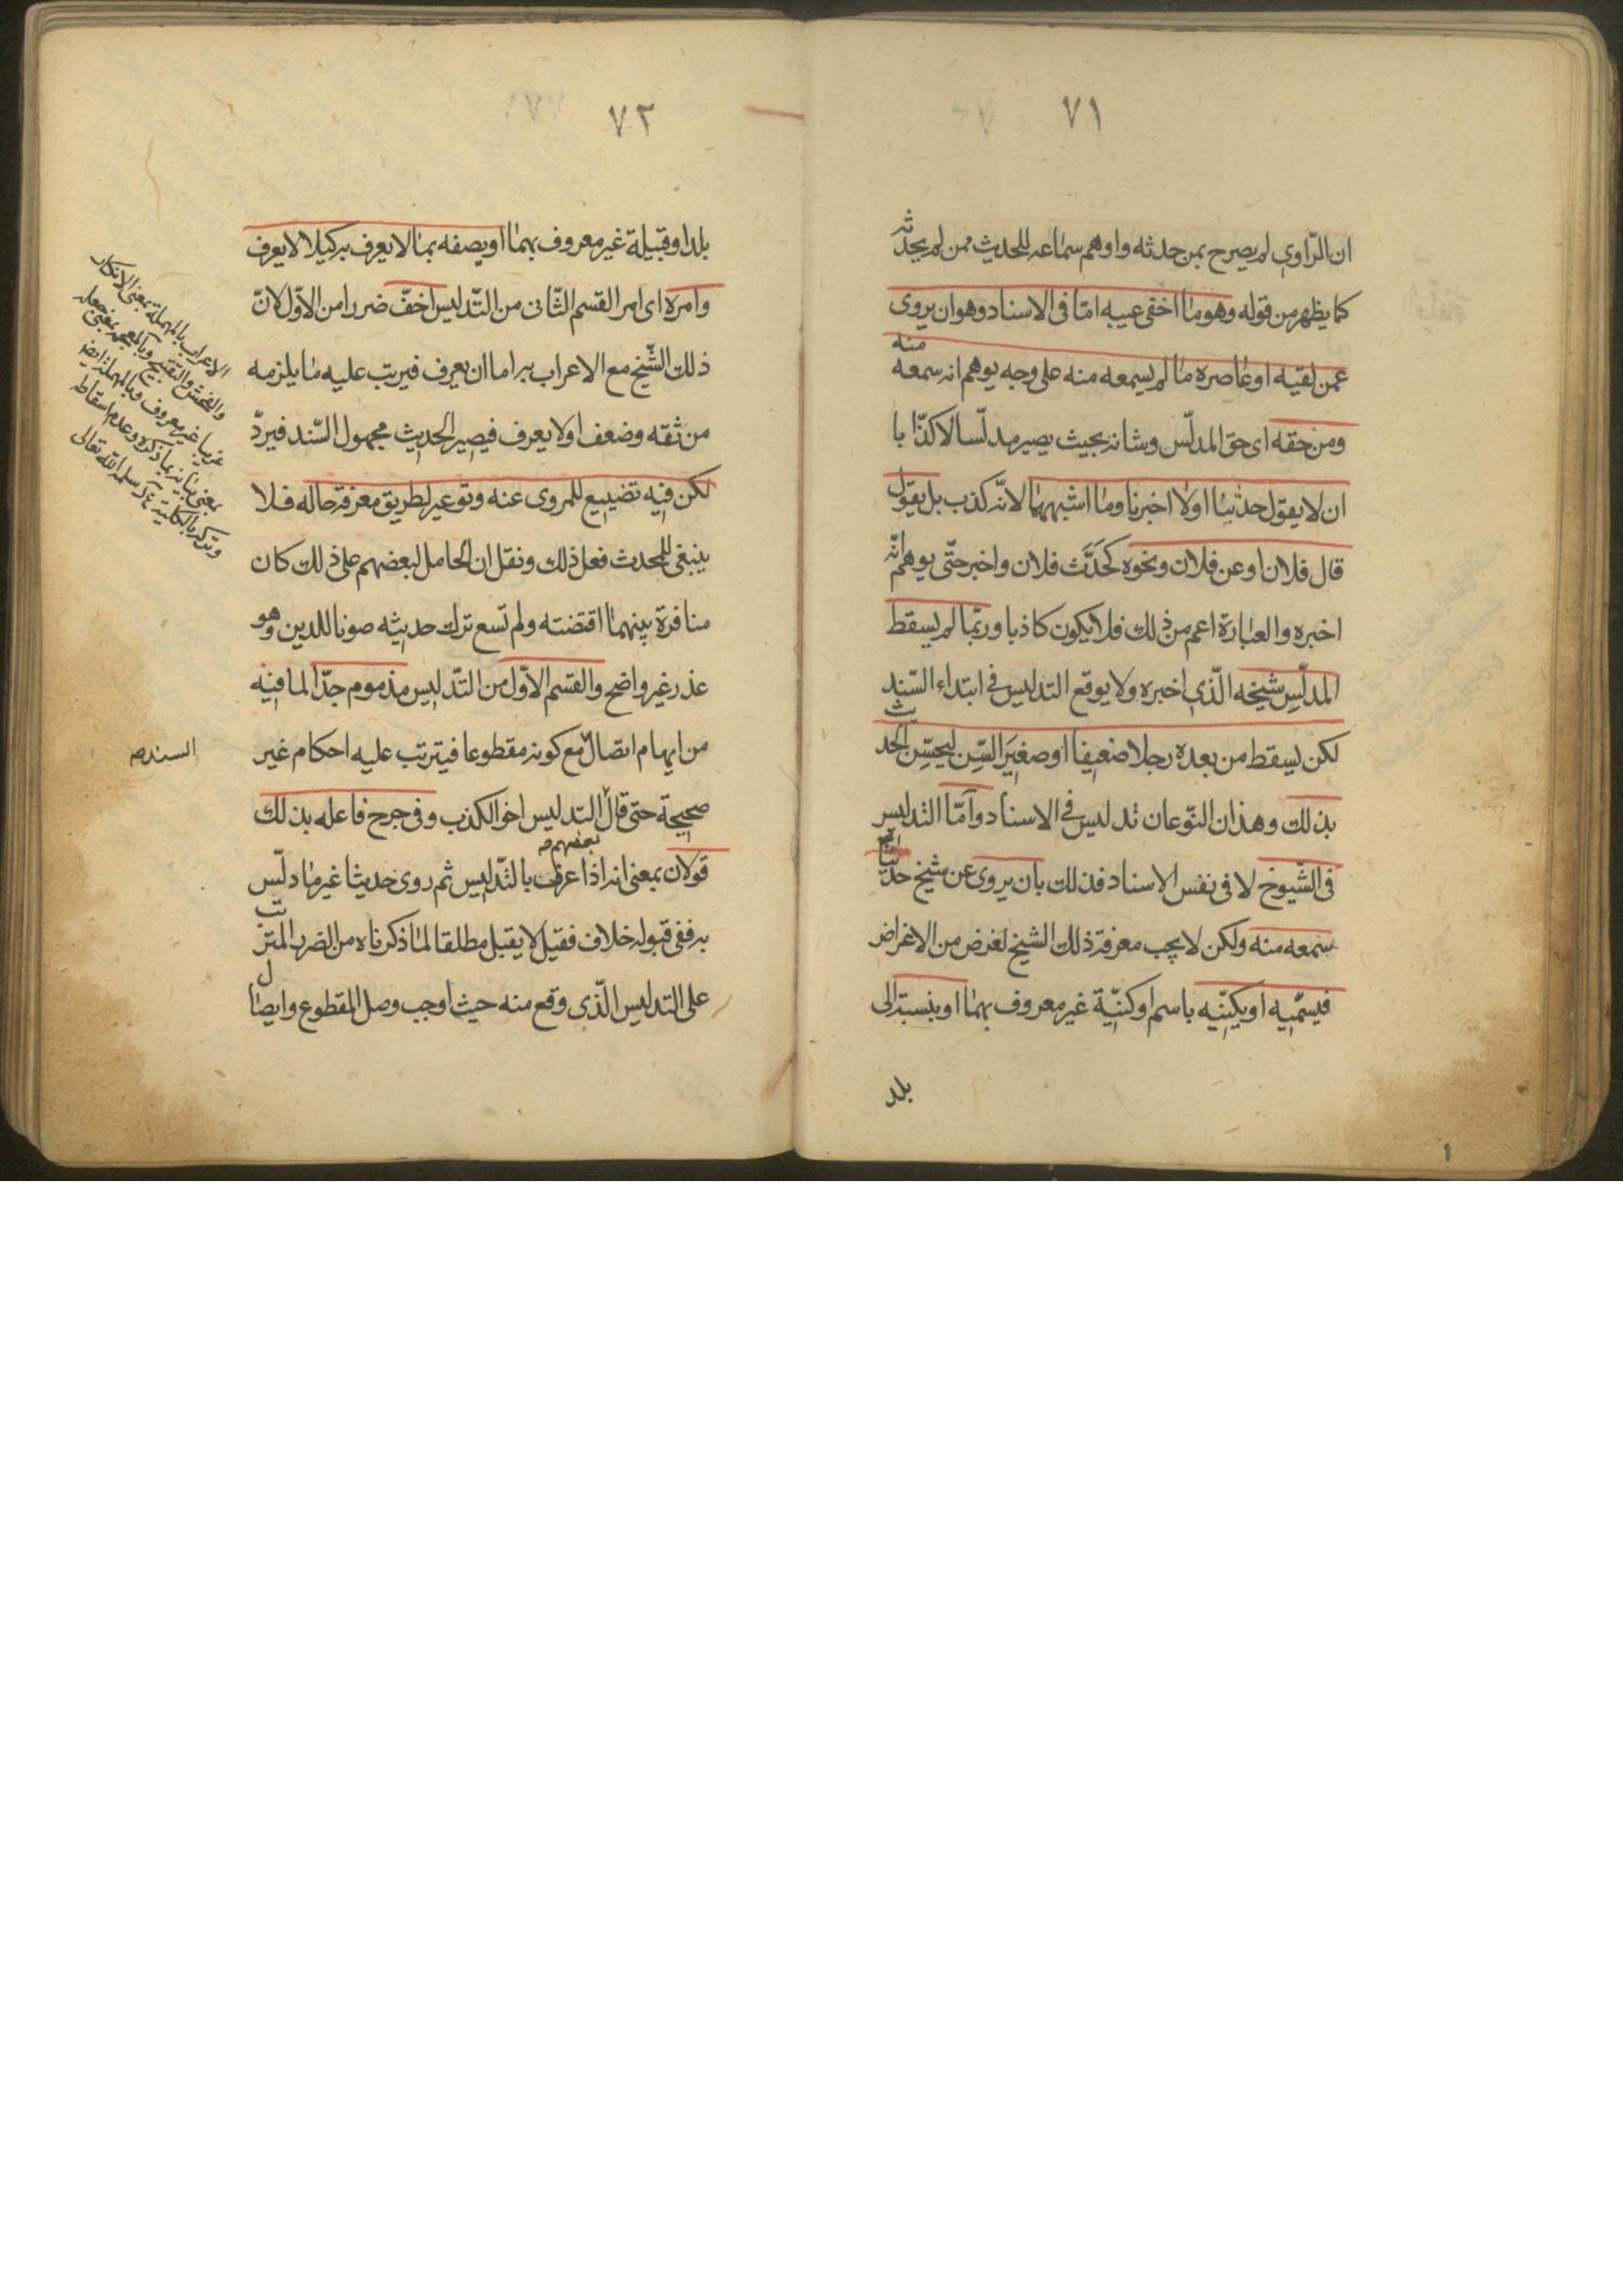 ٧١
ان الرّاوي لم يصرح بمن حدثه واوهم سماعه للحديث ممن لم يحدثه
كما يظهر من قوله وهو ما اخفى عيبه امّا فى الاسناد وهو ان يروى
عمن لقيه او عاصره ما لم يسمعه منه على وجه يوهم انه سمعه منه
ومن حقه اى حق المدلّس وشانه بحيث يصير مدلّسا لا كذّابا
ان لا يقول حدثنا ولا اخبرنا وما اشبههما لانّه كذب بل يقول
قال فلان او عن فلان ونحوه كحَدَّث فلان واخبر حتّى يوهم انّه
اخبره والعبارة اعم من ذلك فلا يكون كاذبا وربّما لم يسقط
المدلّس شيخه الّذى اخبره ولا يوقع التدليس فى ابتداء السّند
لكن يسقط من بعده رجلا ضعيفا او صغيَر السِّن ليحسّن الحديث
بذلك وهذان النّوعان تدليس فى الاسناد وامّا التدليس
فى الشّيوخ لا فى نفس الاسناد فذلك بان يروى عن شيخ حديثا
سمعه منه ولكن لا يحب معرفة ذلك الشيخ لغرض من الاغراض
فيسمّيه او يكنّيه باسم او كنيّة غير معروف بهما او ينسبه الى
بلد
٧٢
بلد او قبيلة غير معروف بهما او يصفه بما لا يعرف به كيلا لا يعرف
وامره اى امر القسم الثّانى من التّدليس اخفّ ضررا من الاوّل لانّ
ذلك الشّيخ مع الاعراب به اما ان يعرف فيرتب عليه ما يلزمه
من ثقه وضعف او لا يعرف فيصير الحديث مجهول السّند فيردّ
لكن فيه تضييع للمروى عنه وتوعير لطريق معرفة حاله فلا
ينبغى للمحدث فعل ذلك ونقل ان الحامل لبعضهم على ذلك كان
منافرة بينهما اقتضته ولم تسع ترك حديثه صونا للدين وهو
عذر غير واضح والقسم الاوّل من التّدليس مذموم جدّا لما فيه
من ايهام اتصال مع كونه مقطوعا فيترتب عليه احكام غير
السند صه
صحيحة حتى قال التدليس اخو الكذب وفى جرح فاعله بذلك
بعضهم صه
قولان بمعنى انه اذا عرف بالتّدليس ثم روى حديثا غير ما دلّس
به ففى قبوله خلاف فقيل لا يقبل مطلقا لما ذكرناه من الضرر المترتب
على التدليس الّذى وقع منه حيث اوجب وصل المقطوع وايصال
الاعراب بالمهملة بمعنى الانكار
والفحش والتقبيح وبالمعجمة بمعنى جعله
غريبا غير معروف وبالمهملة ايضا
بمعنى بيانه بما ذكره وعدم اسقاطه
سلمه الله تعالى